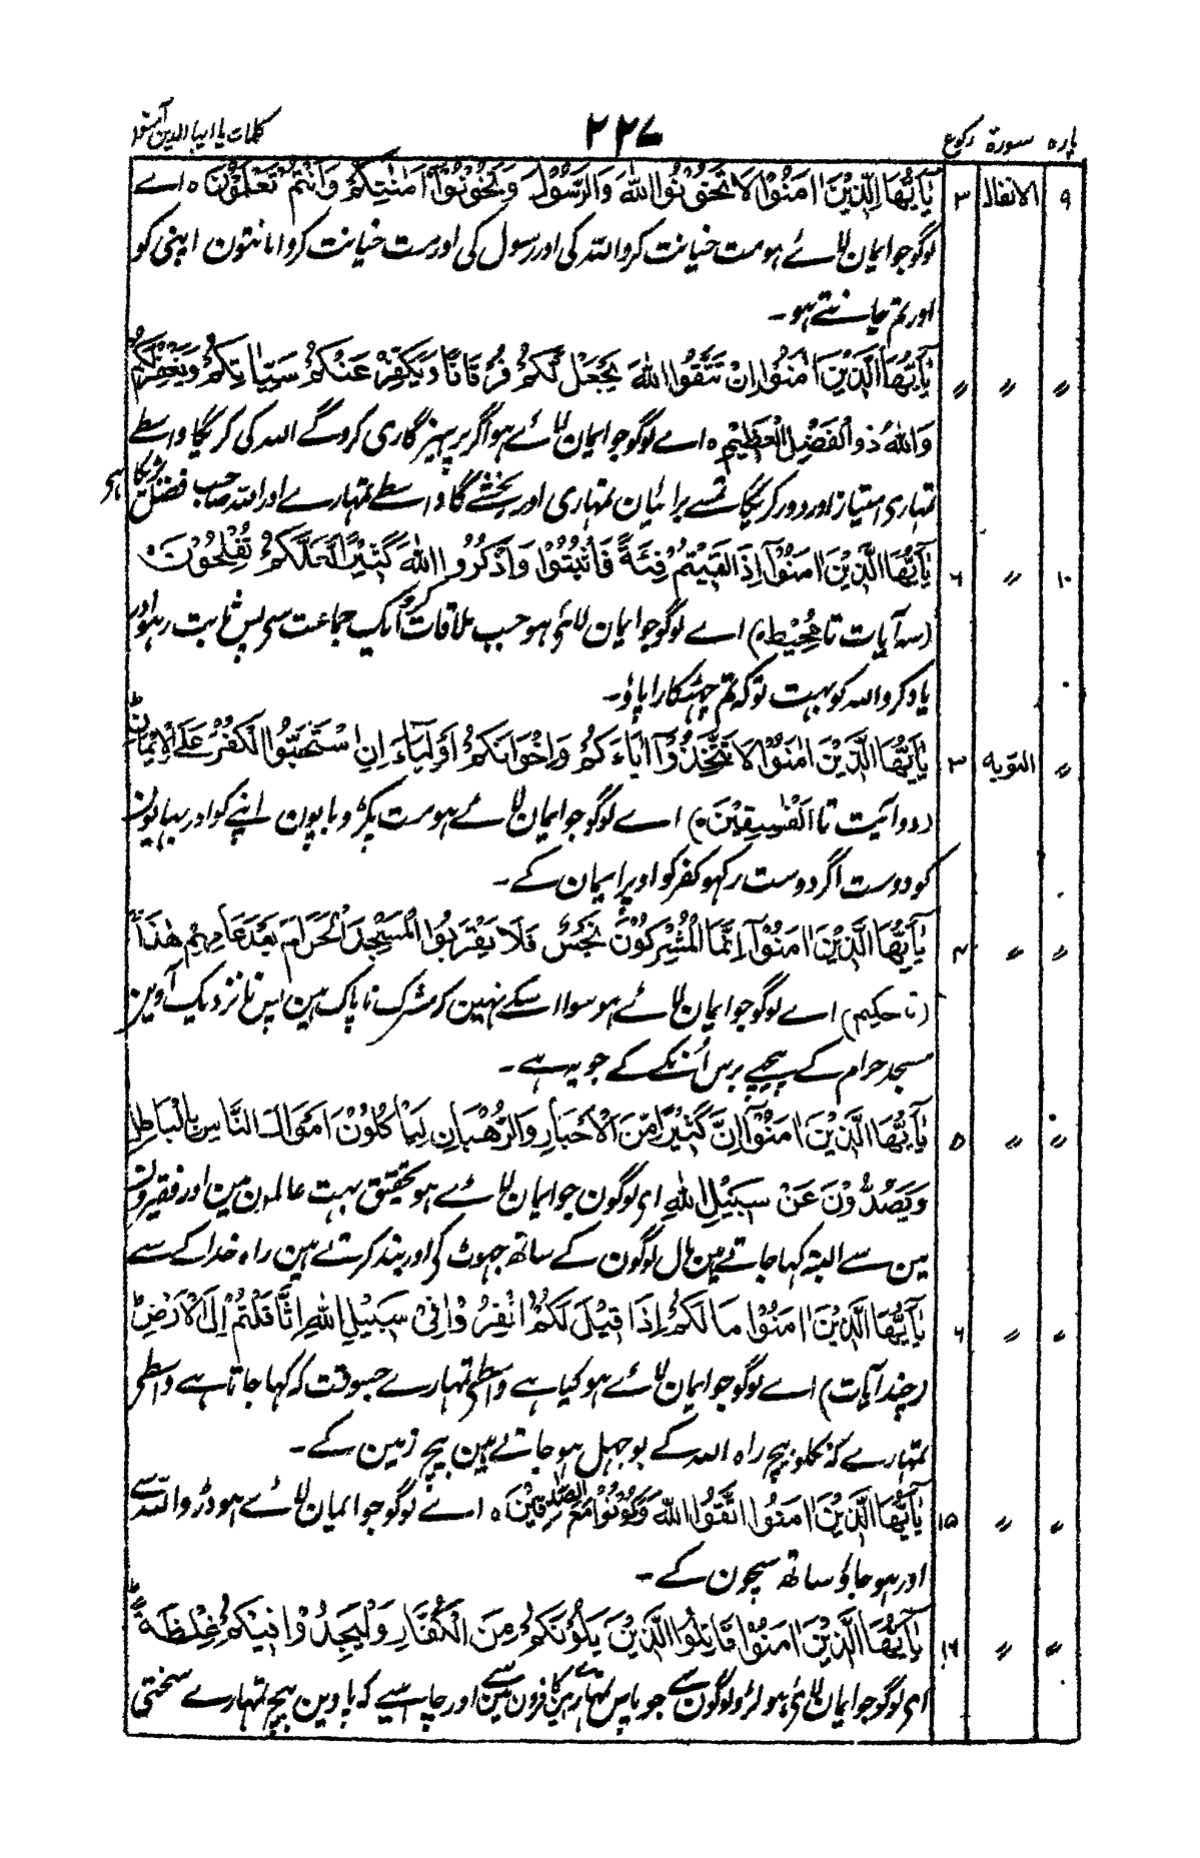 پارہ سورۃ رکوع ۲۲۷ کلمات یا ایہا الذین آمنوا
۹ الانفال ۳ يٰٓاَيُّهَا الَّذِيْنَ اٰمَنُوْا لَا تَخُوْنُوا اللّٰهَ وَالرَّسُوْلَ وَتَخُوْنُوْٓا اَمٰنٰتِكُمْ وَاَنْتُمْ تَعْلَمُوْنَ ہ اے
لوگو جو ایمان لائے ہو مت خیانت کرو اللہ کی اور رسول کی اور مت خیانت کرو امانتون اپنی کو
اور تم جانتے ہو۔
〃 〃 〃 يٰٓاَيُّهَا الَّذِيْنَ اٰمَنُوْٓا اِنْ تَتَّقُوا اللّٰهَ يَجْعَلْ لَّكُمْ فُرْقَانًا وَّيُكَفِّرْ عَنْكُمْ سَيِّاٰتِكُمْ وَيَغْفِرْ لَكُمْ
وَاللّٰهُ ذُو الْفَضْلِ الْعَظِيْمِ ہ اے لوگو جو ایمان لائے ہو اگر پرہیزگاری کروگے اللہ کی کریگا واسطے
تمہاری امتیاز اور دور کریگا تمسے برائیان تمہاری اور بخشے گا واسطے تمہارے اور اللہ صاحب فضل بڑیکا ہی
۱۰ 〃 ۶ يٰٓاَيُّهَا الَّذِيْنَ اٰمَنُوْٓا اِذَا لَقِيْتُمْ فِئَةً فَاثْبُتُوْا وَاذْكُرُوا اللّٰهَ كَثِيْرًا لَّعَلَّكُمْ تُفْلِحُوْنَ
(سہ آیات تا مُحِيْطٌ ہ) اے لوگو جو ایمان لائی ہو جب ملاقات کرو ایک جماعت سی پس ثابت رہو اور
یاد کرو اللہ کو بہت توکہ تم چہٹکارا پاؤ۔
〃 التوبہ ۳ يٰٓاَيُّهَا الَّذِيْنَ اٰمَنُوْا لَا تَتَّخِذُوْٓا اٰبَآءَكُمْ وَاِخْوَانَكُمْ اَوْلِيَآءَ اِنِ اسْتَحَبُّوا الْكُفْرَ عَلَى الْاِيْمَانِ
(دو آیت تا الْفٰسِقِيْنَ ہ) اے لوگو جو ایمان لائے ہو مت پکڑو باپون اپنے کو اور بہائیون
کو دوست اگر دوست رکہو کفر کو اوپر ایمان کے۔
〃 〃 ۴ يٰٓاَيُّهَا الَّذِيْنَ اٰمَنُوْٓا اِنَّمَا الْمُشْرِكُوْنَ نَجَسٌ فَلَا يَقْرَبُوا الْمَسْجِدَ الْحَرَامَ بَعْدَ عَامِهِمْ هٰذَا
(تا حکیم) اے لوگو جو ایمان لائے ہو سوا اسکے نہین کہ مشرک ناپاک ہین پس نا نزدیک آوین
مسجد حرام کے پیچھے برس اُنکے کے جو یہ ہے۔
〃 〃 ۵ يٰٓاَيُّهَا الَّذِيْنَ اٰمَنُوْٓا اِنَّ كَثِيْرًا مِّنَ الْاَحْبَارِ وَالرُّهْبَانِ لَيَاْكُلُوْنَ اَمْوَالَ النَّاسِ بِالْبَاطِلِ
وَيَصُدُّوْنَ عَنْ سَبِيْلِ اللّٰهِ ای لوگون جو ایمان لائے ہو تحقیق بہت عالمون مین اور فقیرون
مین سے البتہ کہا جاتے ہین مال لوگون کے ساتھ جہوٹ کی اور بند کرتے ہین راہ خدا کے سے
〃 〃 ۶ يٰٓاَيُّهَا الَّذِيْنَ اٰمَنُوْا مَا لَكُمْ اِذَا قِيْلَ لَكُمُ انْفِرُوْا فِيْ سَبِيْلِ اللّٰهِ اثَّاقَلْتُمْ اِلَى الْاَرْضِ
(چند آیات) اے لوگو جو ایمان لائے ہو کیا ہے واسطی تمہارے جسوقت کہ کہا جاتا ہے واسطی
تمہارے کہ نکلو بیچ راہ اللہ کے بوجہل ہو جاتے ہین بیچ زمین کے۔
〃 〃 ۱۵ يٰٓاَيُّهَا الَّذِيْنَ اٰمَنُوا اتَّقُوا اللّٰهَ وَكُوْنُوْا مَعَ الصّٰدِقِيْنَ ہ اے لوگو جو ایمان لائے ہو ڈرو اللہ سے
اور ہو جاؤ ساتھ سچون کے۔
〃 〃 ۱۶ يٰٓاَيُّهَا الَّذِيْنَ اٰمَنُوْا قَاتِلُوا الَّذِيْنَ يَلُوْنَكُمْ مِنَ الْكُفَّارِ وَلْيَجِدُوْا فِيْكُمْ غِلْظَةً
ای لوگو جو ایمان لائی ہو لڑو لوگون سے جو پاس تمہارے ہین کافرون مین سے اور چاہیے کہ پاوین بیچ تمہارے سختی